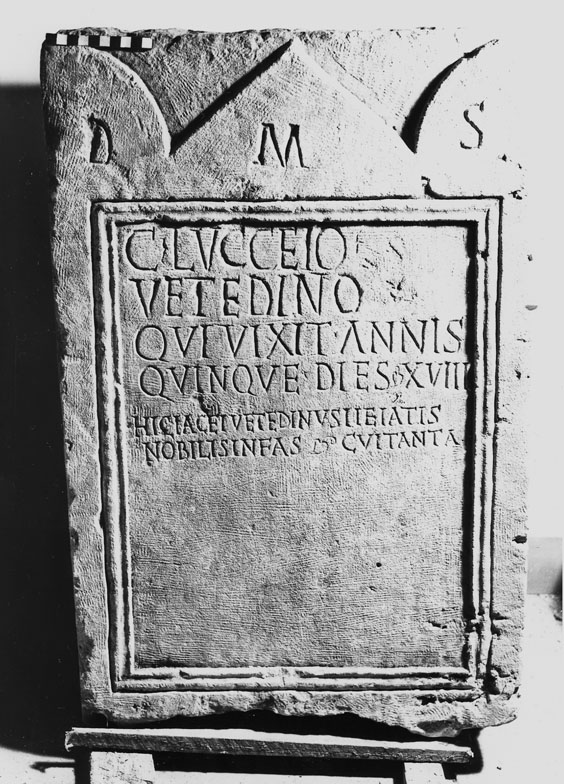 D M S
C LVCCEIO
VETEDINO
QVI VIXIT ANNIS
QVINQVE DIES XVIII
HIC IACET VETEDINVS
NOBILIS INFAS CVI TANTA